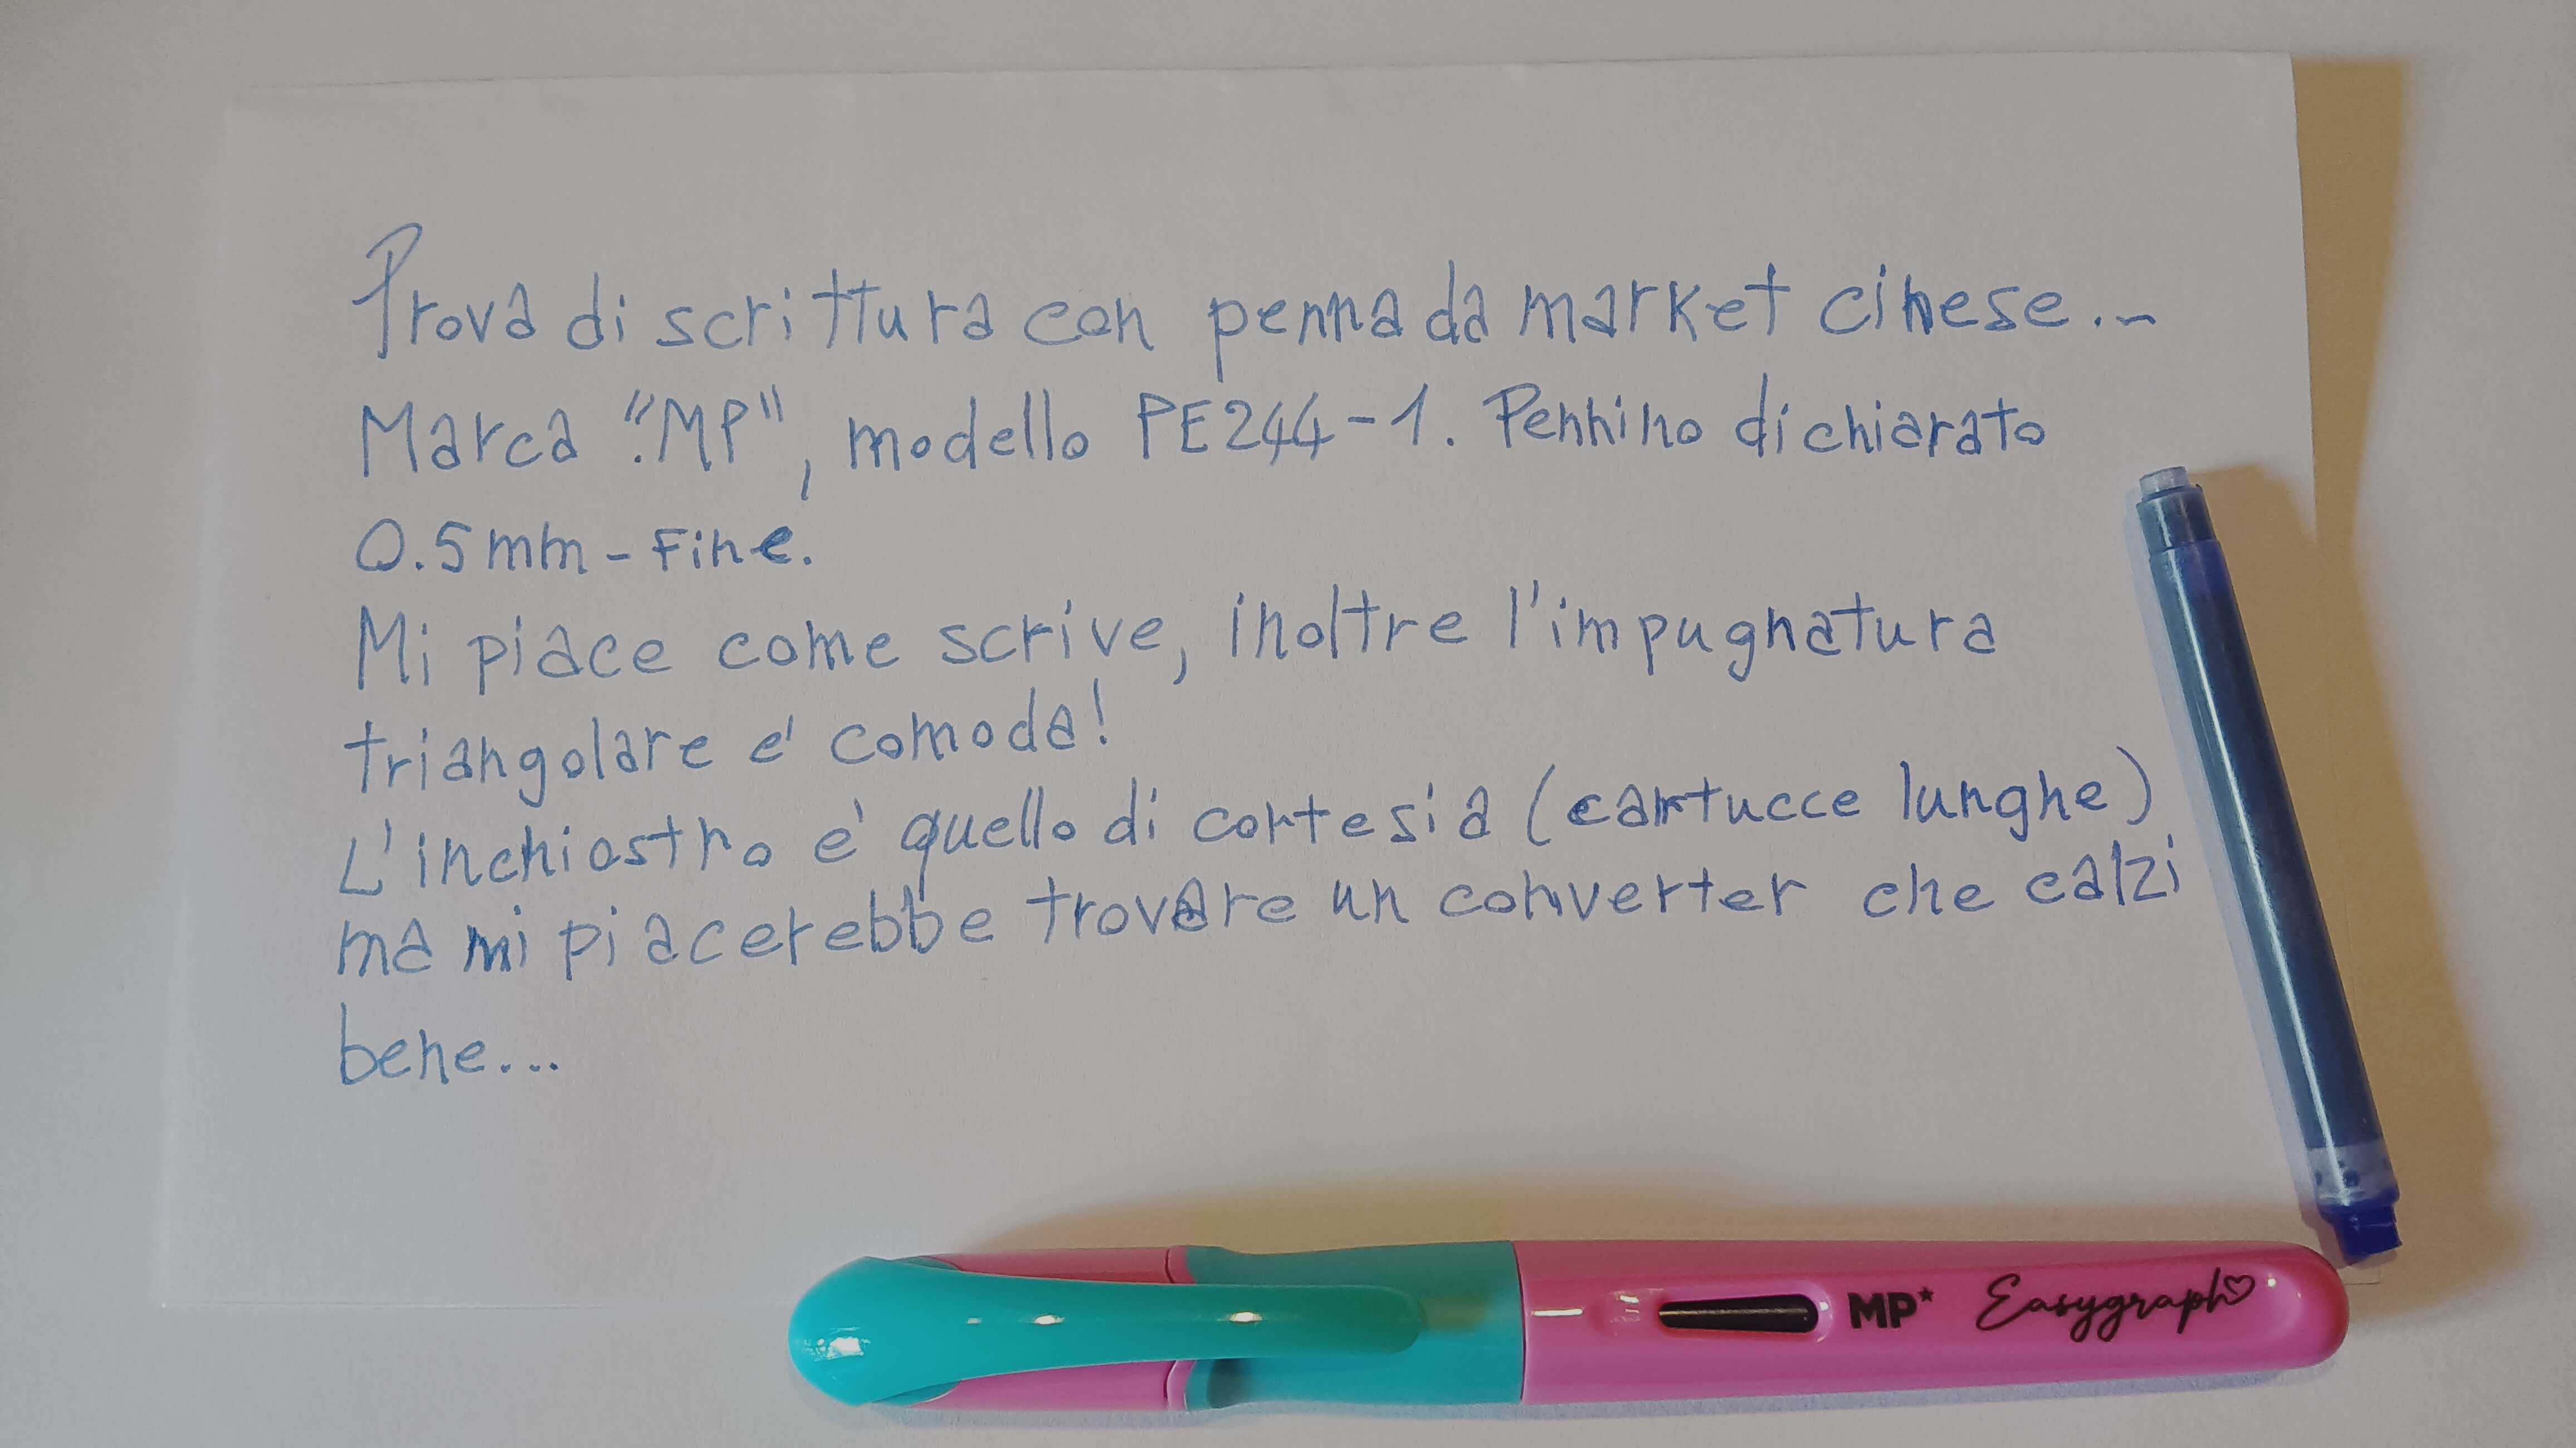 Prova di scrittura con penna da market cinese...
Marca "MP", modello PE244-1. Pennino dichiarato
0.5mm - Fine.
Mi piace come scrive, inoltre l'impugnatura
triangolare e' comoda!
L'inchiostro e' quello di cortesia (cartucce lunghe)
ma mi piacerebbe trovare un converter che calzi
bene...
MP* Easygraph